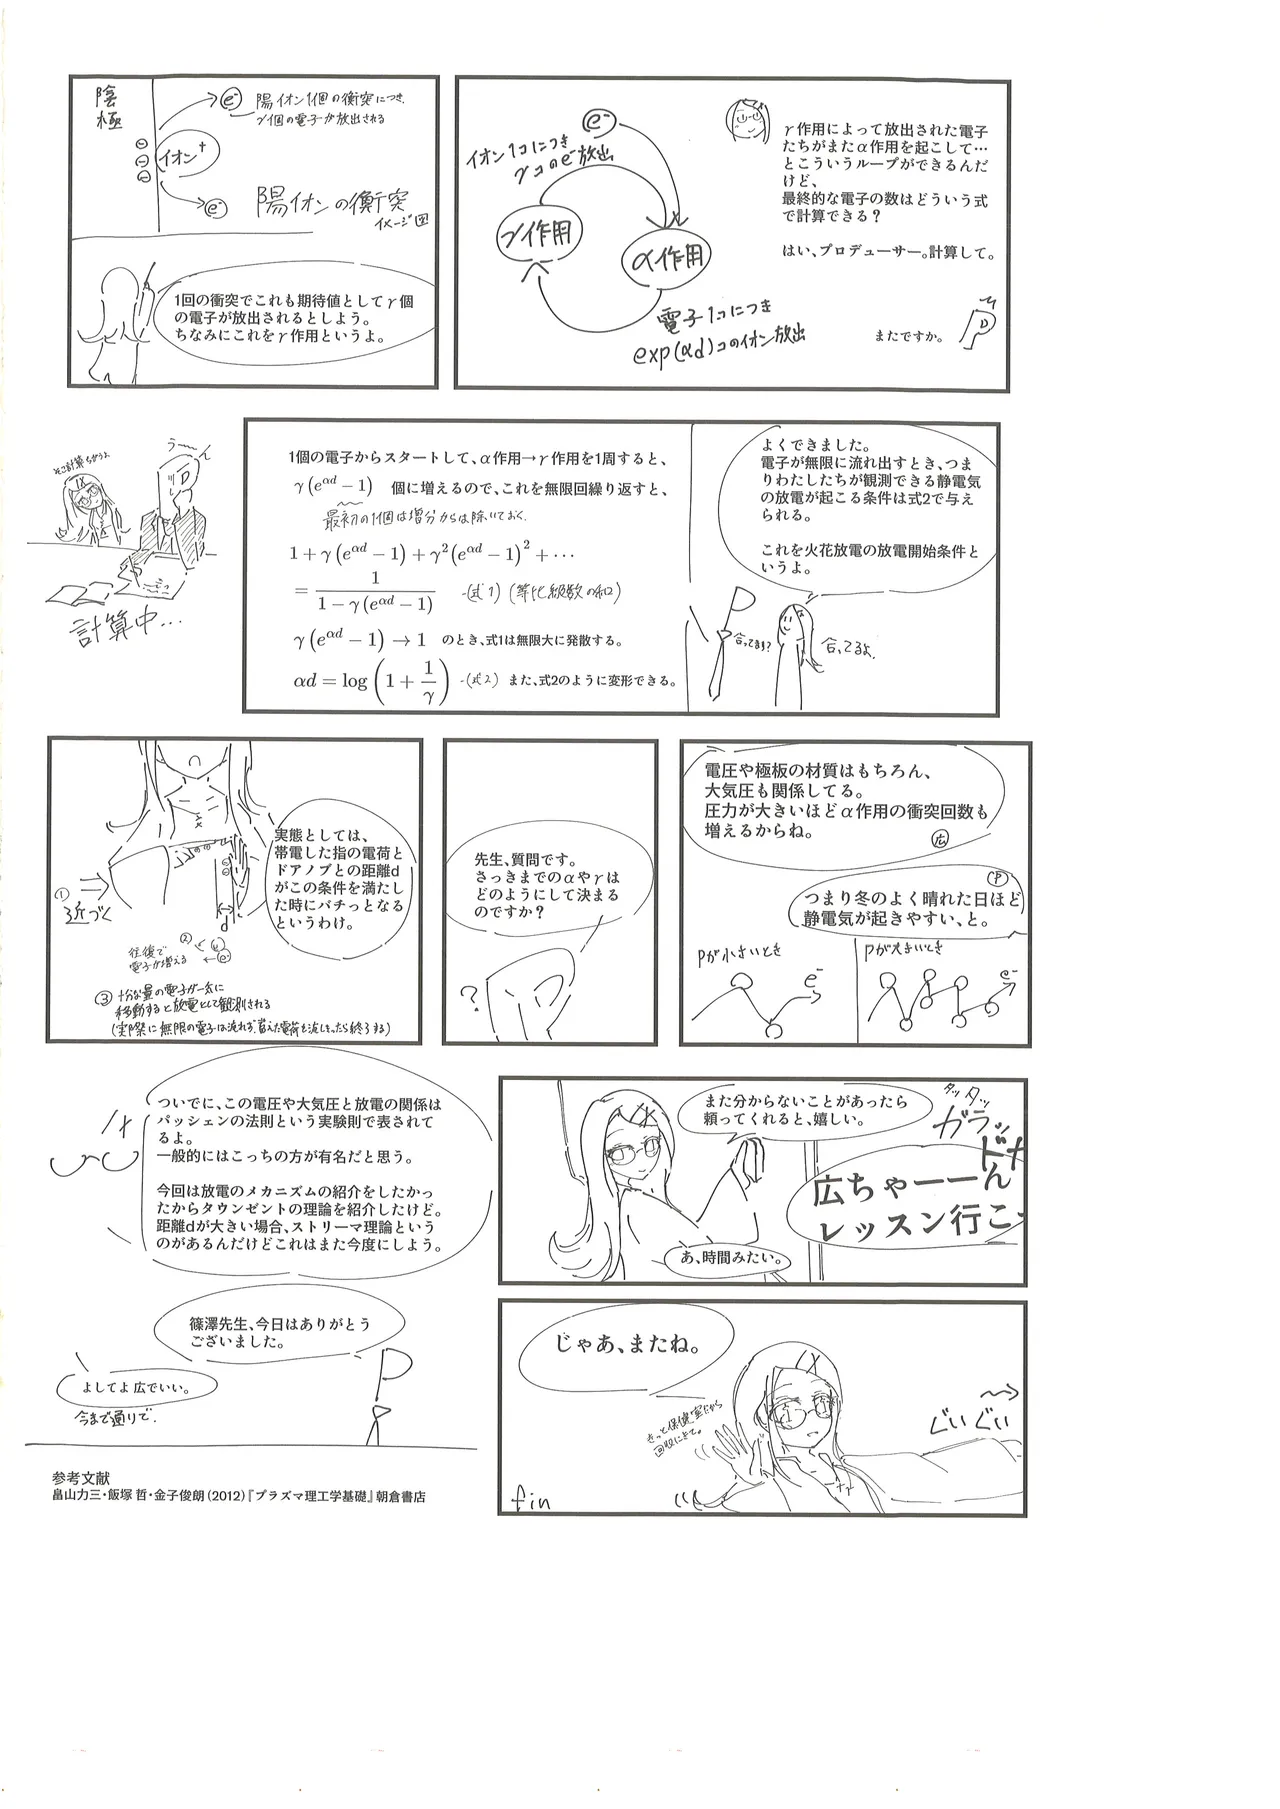 陰極
イオン+
e-
陽イオン1個の衝突につき、
γ個の電子が放出される
e-
陽イオンの衝突
イメージ図
1回の衝突でこれも期待値としてγ個
の電子が放出されるとしよう。
ちなみにこれをγ作用というよ。
e-
イオン1コにつき
γコのe-放出
γ作用
α作用
電子1コにつき
exp(αd)コのイオン放出
γ作用によって放出された電子
たちがまたα作用を起こして…
とこういうループができるんだ
けど、
最終的な電子の数はどういう式
で計算できる?
はい、プロデューサー。計算して。
またですか。
P
うーん
そこ計算ちがうよ
計算中…
1個の電子からスタートして、α作用→γ作用を1周すると、
γ(e^{αd} − 1) 個に増えるので、これを無限回繰り返すと、
最初の1個は増分からは除いておく.
1 + γ(e^{αd} − 1) + γ²(e^{αd} − 1)² + ⋯
= 1/(1 − γ(e^{αd} − 1)) -(式1) (等比級数の和)
γ(e^{αd} − 1) → 1 のとき、式1は無限大に発散する。
αd = log(1 + 1/γ) -(式2) また、式2のように変形できる。
よくできました。
電子が無限に流れ出すとき、つま
りわたしたちが観測できる静電気
の放電が起こる条件は式2で与え
られる。
これを火花放電の放電開始条件と
いうよ。
合ってます?
合ってるよ.
実態としては、
帯電した指の電荷と
ドアノブとの距離d
がこの条件を満たし
た時にバチっとなる
というわけ。
①
近づく
d
②
往復で
電子が増える
e-
③十分な量の電子が一気に
移動すると放電として観測される
(実際に無限の電子は流れず、蓄えた電荷を流しきったら終了する)
先生、質問です。
さっきまでのαやγは
どのようにして決まる
のですか?
?
電圧や極板の材質はもちろん、
大気圧も関係してる。
圧力が大きいほどα作用の衝突回数も
増えるからね。
広
P
つまり冬のよく晴れた日ほど
静電気が起きやすい、と。
Pが小さいとき
e-
Pが大きいとき
e-
ついでに、この電圧や大気圧と放電の関係は
パッシェンの法則という実験則で表されて
るよ。
一般的にはこっちの方が有名だと思う。
今回は放電のメカニズムの紹介をしたかっ
たからタウンゼントの理論を紹介したけど。
距離dが大きい場合、ストリーマ理論という
のがあるんだけどこれはまた今度にしよう。
また分からないことがあったら
頼ってくれると、嬉しい。
タッタッ
ガラッ
広ちゃーーん
レッスン行こ
あ、時間みたい。
篠澤先生、今日はありがとう
ございました。
よしてよ 広でいい。
今まで通りで.
P
じゃあ、またね。
きっと保健室だから
回収にきて。
ぐいぐい
fin
参考文献
畠山力三・飯塚 哲・金子俊朗(2012)『プラズマ理工学基礎』朝倉書店